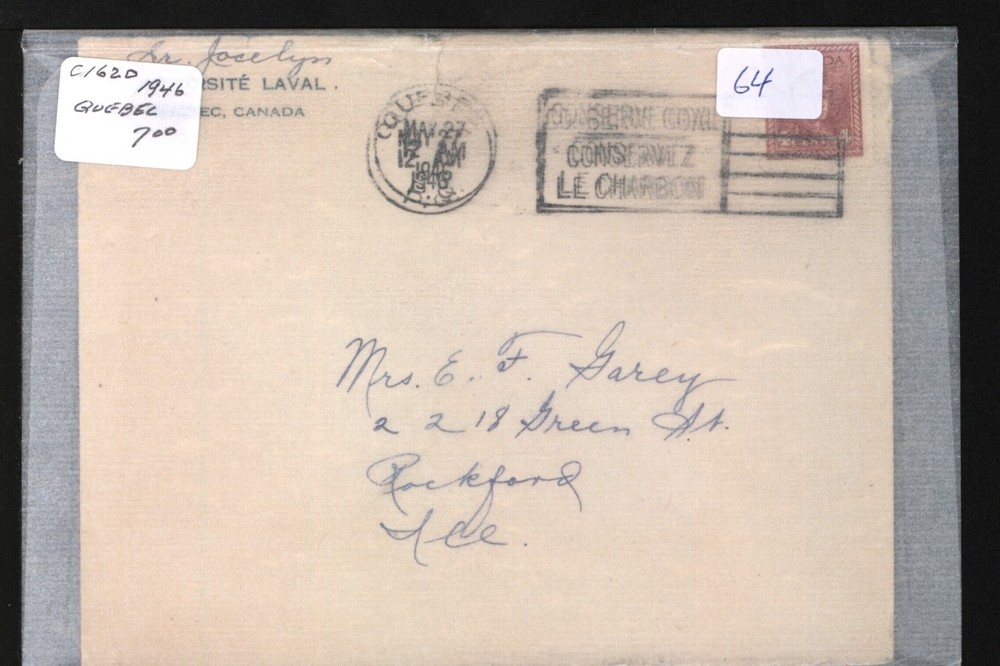 Sr. Jocelyn
RSITÉ LAVAL.
EC, CANADA
C162D
1946
QUEBEC
7 00
QUEBEC
MAY 27
12 AM
1946
P.Q.
CONSERVE COAL
CONSERVEZ
LE CHARBON
64
DA
Mrs. E. F. Garey
2 2 18 Green St.
Rockford
Ill.